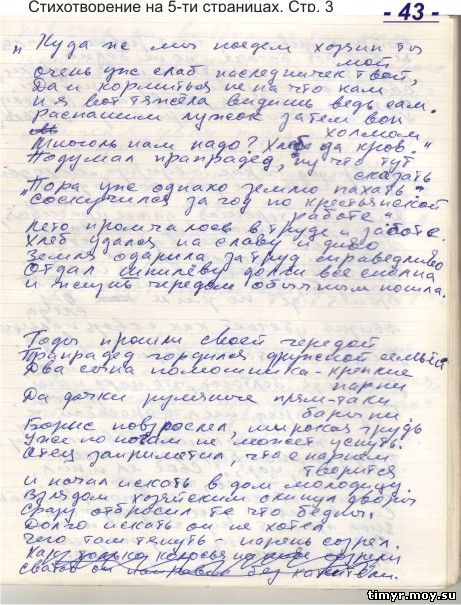 Стихотворение на 5-ти страницах. Стр. 3
- 43 -
"Куда же мы поедем хозяин ты
мой
очень уж слаб наследничек твой,
Да и кормиться не на что нам
и я вот тяжела видишь ведь сам.
Распашем лужок затем вон
холмом
Много ль нам надо? Хлеб да кров."
Подумал прапрадед, ну что тут
сказать
"Пора уже однако землю пахать"
соскучился за год по крестьянской
работе",
лето промчалось в труде и заботе.
Хлеб удался на славу и диво
Земля одарила за труд справедливо
Отдал долги все сполна
и жизнь чередом обычным пошла.
Годы прошли своей чередой
Прапрадед гордился дружной семьёй
Два сына помошника - крепкие
парни
Да дочки румяные прям-таки
барыни.
Борис повзрослел, широкая грудь
Уже по ночам не может уснуть.
Отец заприметил, что с парнем
творится
и начал искать в дом молодицу.
Взглядом хозяйским окинул дворы
сразу отбросил те что бедны.
Долго искать он не хотел
чего там тянуть - парень созрел.
Как только колосья
сватов он без канители.
timyr.moy.su